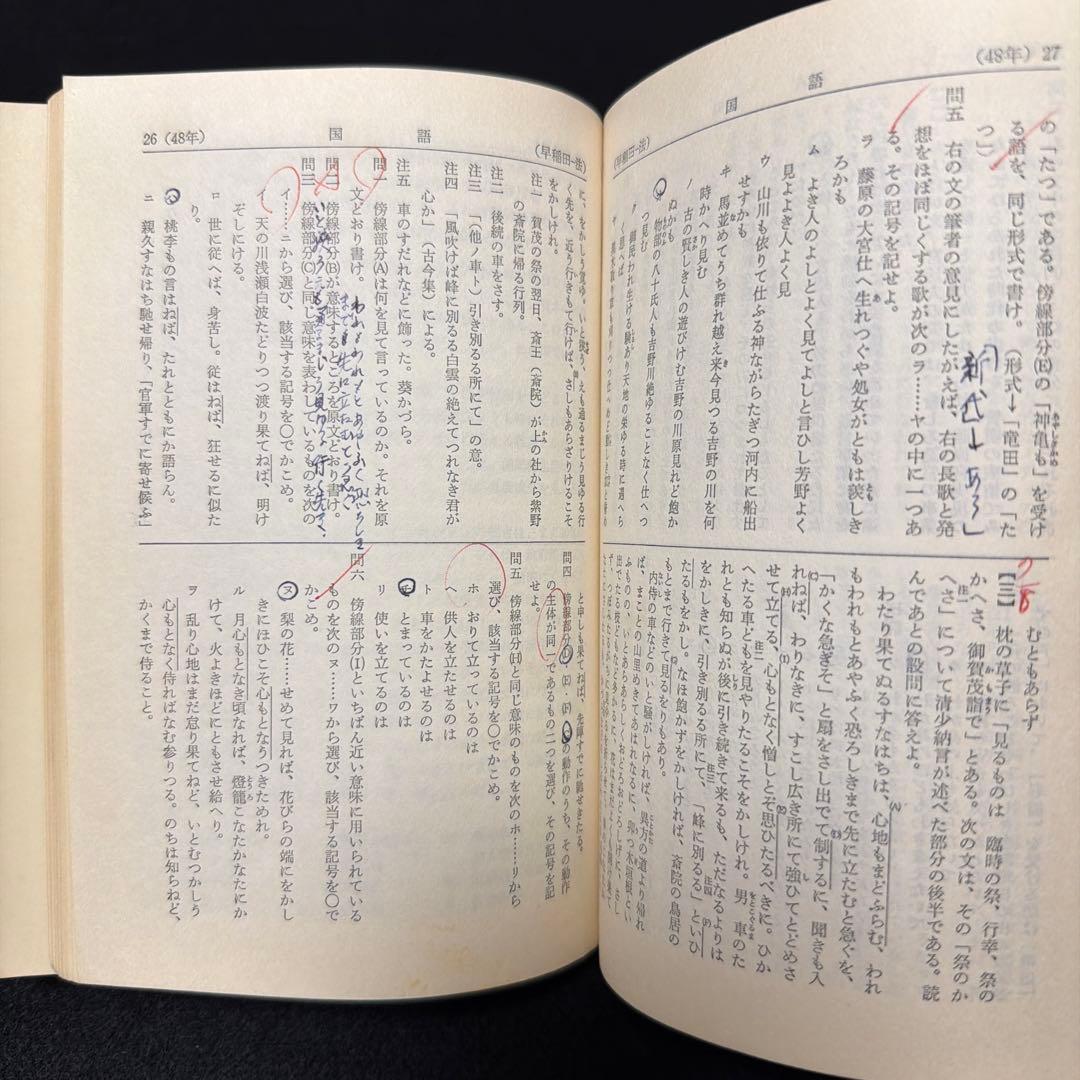 (48年) 27
国語
(早稲田—法)
の「たつ」である。傍線部分(E)の「神亀も」を受け
る語を、同じ形式で書け。 (形式→「竜田」の「た
つ」)
「新代→あら」
問五 右の文の筆者の意見にしたがえば、右の長歌と発
想をほぼ同じくする歌が次のラ……ヤの中に一つあ
る。その記号を記せよ。
ラ 藤原の大宮仕へ生れつぐや処女がともは羨しき
ろかも
ム よき人のよしとよく見てよしと言ひし芳野よく
見よよき人よく見
ウ 山川も依りて仕ふる神ながらたぎつ河内に船出
せすかも
ヰ 馬並めてうち群れ越え来今見つる吉野の川を何
時かへり見む
ノ 古の賢しき人の遊びけむ吉野の川原見れど飽か
ぬかも
オ 物部の八十氏人も吉野川絶ゆることなく仕へつ
つ見む
ク 御民われ生ける験あり天地の栄ゆる時に遇へら
く思へば
むともあらず
2/8
【三】 枕の草子に「見るものは 臨時の祭、行幸、祭の
かへさ、御賀茂詣で」とある。次の文は、その「祭のか
へさ」について清少納言が述べた部分の後半である。読
んであとの設問に答えよ。
わたり果てぬるすなはちは、心地もまどふらむ、われ
もわれもとあやふく恐ろしきまで先に立たむと急ぐを、
「かくな急ぎそ」と扇をさし出でて制するに、聞きも入
れねば、わりなきに、すこし広き所にて強ひてとどめさ
せて立てる、心もとなく憎しとぞ思ひたるべきに。ひか
へたる車どもを見やりたるこそをかしけれ。男車のた
れとも知らぬが後に引き続きて来るも、ただなるよりは
をかしきに、引き別るる所にて、「峰に別るる」といひ
たるもをかし。なほ飽かずをかしければ、斎院の鳥居の
もとまで行きて見るをりもあり。
内侍の車などのいと騒がしければ、異方の道より帰れ
ば、まことの山里めきてあはれなるに、卯つ木垣根とい
ふものの、いとあらあらしくおどろおどろしげに、さし
出でたる枝どもなど多かるに、花はまだよくも開け果て
26 (48年)
国語
(早稲田—法)
に、をかしう覚ゆ。いと狭うえも通るまじう見ゆる行
く先を、近う行きもて行けば、さしもあらざりけるこそ
をかしけれ。
注一 賀茂の祭の翌日、斎王(斎院)が上の社から紫野
の斎院に帰る行列。
注二 後続の車をさす。
注三 「(他ノ車ト)引き別るる所にて」の意。
注四 「風吹けば峰に別るる白雲の絶えてつれなき君が
心か」(古今集)による。
注五 車のすだれなどに飾った。葵かづら。
問一 傍線部分(A)は何を見て言っているのか。それを原
文どおり書け。
問二 傍線部分(B)が意味するところを原文どおり書け。
問三 傍線部分(C)と同じ意味を表わしているものを次の
イ……ニから選び、該当する記号を〇でかこめ。
イ 天の川浅瀬白波たどりつつ渡り果てねば、明け
そしにける。
ロ 世に従へば、身苦し。従はねば、狂せるに似た
り。
ハ 桃李もの言はねば、たれとともにか語らん。
ニ 親久すなはち馳せ帰り、「官軍すでに寄せ候ふ」
と申しも果てねば、先陣すでに馳せきたる。
問四 傍線部分(D)・(E)・(F)・(G)の動作のうち、その動作
の主体が同一であるもの二つを選び、その記号を記
せよ。
問五 傍線部分(H)と同じ意味のものを次のホ……リから
選び、該当する記号を〇でかこめ。
ホ おりて立っているのは
ヘ 供人を立たせるのは
ト 車をかたよせるのは
チ とまっているのは
リ 使いを立てるのは
問六 傍線部分(I)といちばん近い意味に用いられている
ものを次のヌ……ワから選び、該当する記号を〇で
かこめ。
ヌ 梨の花……せめて見れば、花びらの端にをかし
きにほひこそ心もとなうつきためれ。
ル 月心もとなき頃なれば、燈籠こなたかなたにか
けて、火よきほどにともさせ給へり。
ヲ 乱り心地はまだ怠り果てねど、いとむつかしう
心もとなく侍ればなむ参りつる。のちは知らねど、
かくまで侍ること。